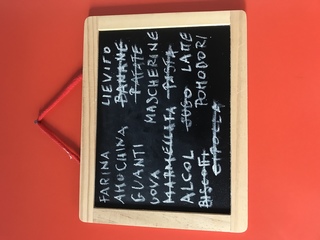 FARINA LIEVITO
AMUCHINA BANANE
GUANTI PATATE
UOVA MASCHERINE
MARMELLATA PASTA
ALCOL SUGO LATTE
BISCOTTI POMODORI
CIPOLLA